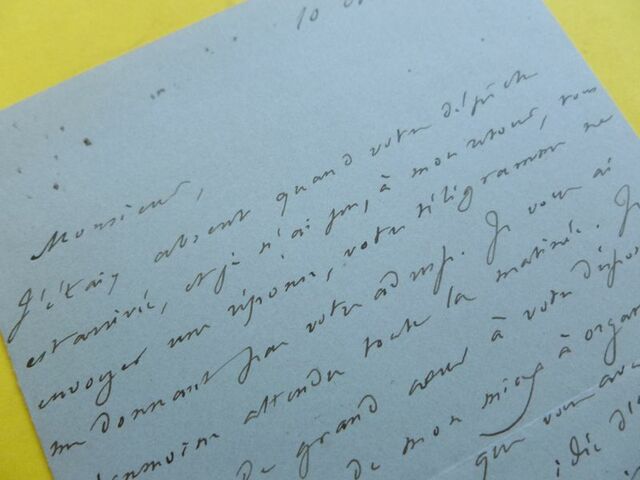 10
Monsieur,
J'étais absent quand votre dépêche
est arrivée, et je n'ai pu, à mon retour, vous
envoyer une réponse, votre télégramme ne
me donnant pas votre adresse. Je vous ai
néanmoins attendu toute la matinée. Je
de grand cœur à votre dispos
de mon mieux à organ
que vous ava
idée d'